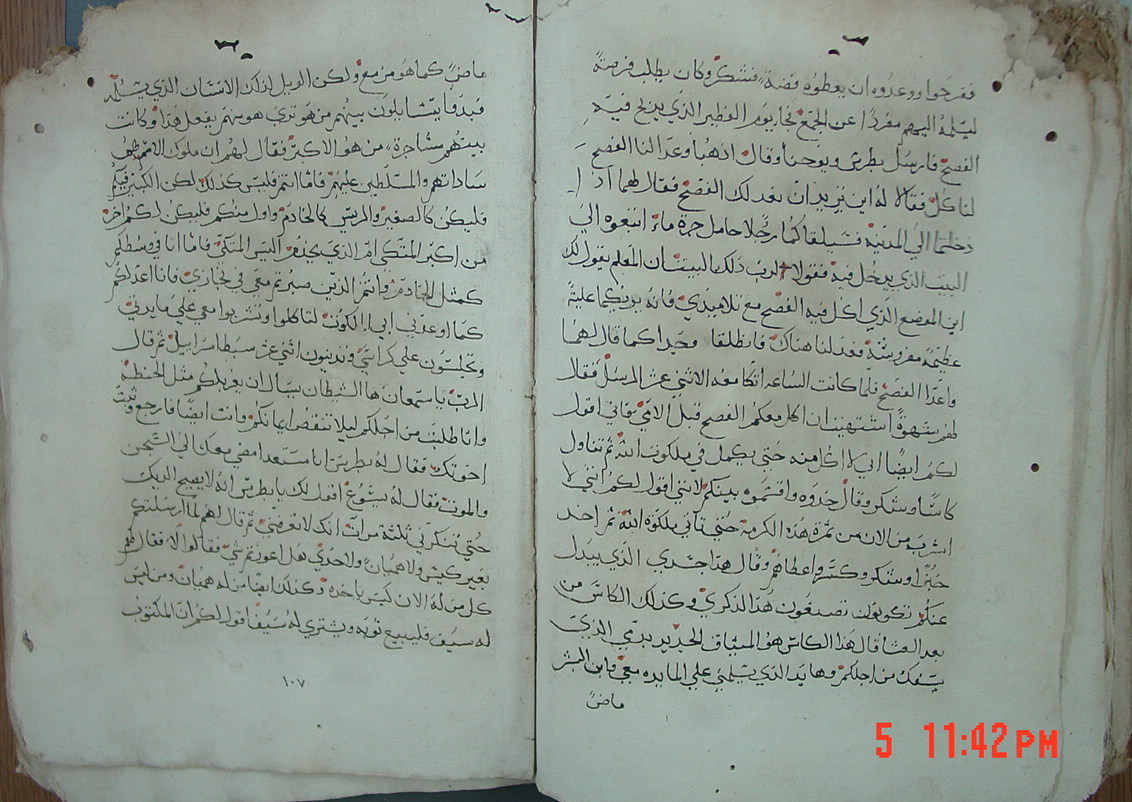 ففرحوا ووعدوه ان يعطوه فضة فشكر وكان يطلب فرصة
ليسلمه اليهم مفردا عن الجمع فجا يوم الفطير الذي يذبح فيه
الفصح فارسل بطرس ويوحنا وقال اذهبا وعدا لنا الفصح
لناكل فقالا له اين تريد ان نعد لك الفصح فقال لهما اذا
دخلتما الي المدينه فسيلقاكما رجلا حامل جرة ماء اتبعوه الي
البيت الذي يدخل فيه فقولا لرب ذلك البيت ان المعلم يقول لك
اين الموضع الذي اكل فيه الفصح مع تلاميذي فانه يوريكما علية
عظيمة مفروشة فعدا لنا هناك فانطلقا وجدا كما قال لهما
واعدا الفصح فلما كانت الساعه اتكا معه الاثني عشر الرسل فقال
لهم شهوة اشتهيت ان اكل معكم الفصح قبل الامي فاني اقول
لكم ايضا اني لا اكل منه حتي يكمل في ملكوت الله ثم تناول
كاسا وشكر وقال خذوه واقتسموه بينكم لانني اقول لكم انني لا
اشرب من الان من ثمرة هذه الكرمة حتي تاتي ملكوة الله ثم اخد
خبزا وشكر وكسر واعطاهم وقال هذا جسدي الذي يبدل
عنكم تكونون تصنعون هذا لذكري وكذلك الكاس من
بعد العشا قال هذا الكاس هو الميثاق الجديد بدمي الذي
يسفك من اجلكم وها يد الذي يسلمني علي المايده معي وابن البشر
ماض
ماض كما هو مزمع ولكن الويل لذلك الانسان الذي يسلمه
فبدوا يتسايلون بينهم من هو تري هو منهم يفعل هذا وكانت
بينهم مشاجرة من هو الاكبر فقال لهم ان ملوك الامم هم
ساداتهم والمسلطين عليهم فاما انتم فليس كذلك لكن الكبير فيكم
فليكن كالصغير والريس كالخادم واول منكم فليكن لكم اخر
من اكبر المتكي ام الذي يخدم اليس المتكي فاما انا في وسطكم
كمثل الخادم وانتم الذين صبرتم معي في تجاربي فانا اعد لكم
كما اوعدني ابي الملكوت لتاكلوا وتشربوا معي علي مايدتي
وتجلسون علي كراسي وتدينون اثني عشر سبط اسراييل ثم قال
الرب يا سمعان ها الشيطان سال ان يغربلكم مثل الحنطه
وانا طلبت من اجلكم ليلا تنقص ايمانكم وانت ايضا فارجع وثبت
اخوتك فقال له بطرس انا مستعد امضي معك الي السجن
والموت فقال له يسوع اقول لك يا بطرس انه لا يصيح الديك
حتي تنكرني ثلثة مرات انك لا تعرفني ثم قال لهم لما ارسلتكم
بغير كيس ولا هميان ولا حذي هل اعوزتم شي فقالوا لا فقال لهم
كل من له الان كيس ياخذه وكذلك ايضا من له هميان ومن ليس
له سيف فليبيع ثوبه ويشتري له سيفا اقول لكم ان المكتوب
١٠٧
5 11:42PM